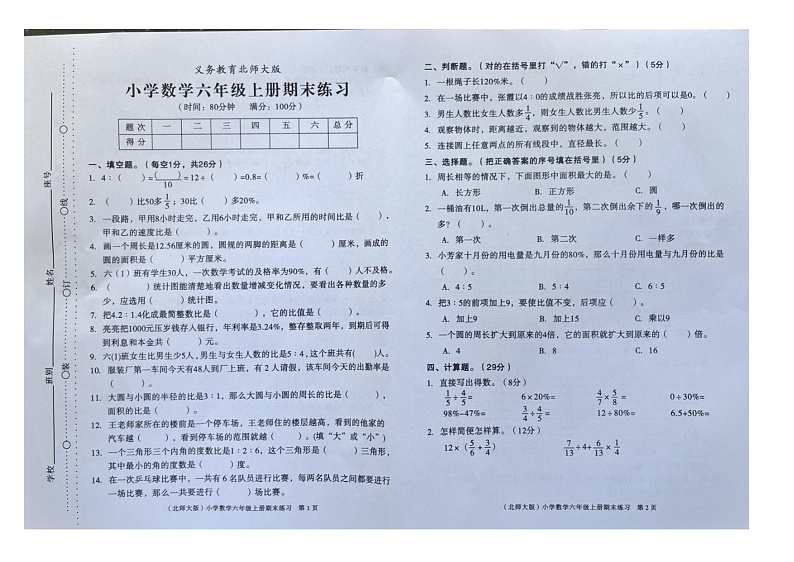 学校 班别 姓名 座号
装 订 线
义务教育北师大版
小学数学六年级上册期末练习
（时间：80分钟 满分：100分）
题次 一 二 三 四 五 六 总分
得分
一、填空题。（每空1分，共26分）
1. 4：（ ）=（ ）/10=12÷（ ）=0.8=（ ）%=（ ）折
2. （ ）比50多1/5；30比（ ）多20%。
3. 一段路，甲用8小时走完，乙用6小时走完，甲和乙所用的时间比是（ ），
甲和乙的速度比是（ ）。
4. 画一个周长是12.56厘米的圆，圆规的两脚的距离是（ ）厘米，画成的
圆的面积是（ ）平方厘米。
5. 六（1）班有学生30人，一次数学考试的及格率为90%，有（ ）人不及格。
6. （ ）统计图能清楚地看出数量增减变化情况，要看出各种数量的多
少，应选用（ ）统计图。
7. 把4.2：1.4化成最简整数比是（ ），它的比值是（ ）。
8. 亮亮把1000元压岁钱存入银行，年利率是3.24%，整存整取两年，到期后可得
到利息和本金共（ ）元。
9. 六(1)班女生比男生少5人,男生与女生人数的比是5：4,这个班共有( )人。
10. 服装厂第一车间今天有48人到厂上班，有2人请假，该车间今天的出勤率是
（ ）。
11. 大圆与小圆的半径的比是3：1，那么大圆与小圆的周长的比是（ ），
面积的比是（ ）。
12. 王老师家所在的楼前是一个停车场，王老师住的楼层越高，看到的他家的
汽车越（ ），看到停车场的范围就越（ ）。(填“大”或“小”)
13. 一个三角形三个内角的度数比是1：2：6，这个三角形是（ ）三角形，
其中最小的角的度数是（ ）度。
14. 在一次乒乓球比赛中，一共有6名队员进行比赛，每两名队员之间都要进行
一场比赛，那么一共要进行（ ）场比赛。
（北师大版）小学数学六年级上册期末练习 第1页
二、判断题。（对的在括号里打“√”，错的打“×”）（5分）
1. 一根绳子长120%米。（ ）
2. 在一场比赛中，张霞以4：0的成绩战胜张亮，所以比的后项可以是0。（ ）
3. 男生人数比女生人数多1/4，则女生人数比男生人数少1/5。（ ）
4. 观察物体时，距离越近，观察到的物体越大，范围越大。（ ）
5. 连接圆上任意两点的所有线段中，直径最长。（ ）
三、选择题。（把正确答案的序号填在括号里）（5分）
1. 周长相等的情况下，下面图形中面积最大的是。（ ）
A. 长方形 B. 正方形 C. 圆
2. 一桶油有10L，第一次倒出总量的1/10，第二次倒出余下的1/9，哪一次倒出的
多？（ ）。
A. 第一次 B. 第二次 C. 一样多
3. 小芳家十月份的用电量是九月份的80%，那么十月份用电量与九月份的比是
（ ）。
A. 4：5 B. 5：4 C. 6：5
4. 把3：5的前项加上9，要使比值不变，后项应（ ）。
A. 加上9 B. 加上15 C. 乘以9
5. 一个圆的周长扩大到原来的4倍，它的面积就扩大到原来的（ ）倍。
A. 4 B. 8 C. 16
四、计算题。（29分）
1. 直接写出得数。（8分）
1/5÷4/5= 6×20%= 4/7×5/8= 0÷30%=
98%-47%= 3/4÷4/5= 12÷80%= 6.5+50%=
2. 怎样简便怎样算。（12分）
12×（5/6+3/4） 7/13÷4+6/13×1/4
（北师大版）小学数学六年级上册期末练习 第2页